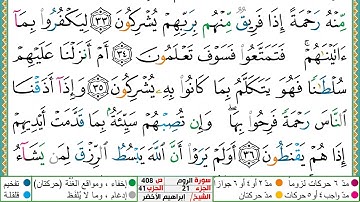 مِّنْهُ رَحْمَةً إِذَا فَرِيقٌ مِّنْهُم بِرَبِّهِمْ يُشْرِكُونَ ٣٣ لِيَكْفُرُوا۟ بِمَآ
ءَاتَيْنَٰهُمْ ۚ فَتَمَتَّعُوا۟ فَسَوْفَ تَعْلَمُونَ ٣٤ أَمْ أَنزَلْنَا عَلَيْهِمْ
سُلْطَٰنًا فَهُوَ يَتَكَلَّمُ بِمَا كَانُوا۟ بِهِۦ يُشْرِكُونَ ٣٥ وَإِذَآ أَذَقْنَا
ٱلنَّاسَ رَحْمَةً فَرِحُوا۟ بِهَا ۖ وَإِن تُصِبْهُمْ سَيِّئَةٌۢ بِمَا قَدَّمَتْ أَيْدِيهِمْ
إِذَا هُمْ يَقْنَطُونَ ٣٦ أَوَلَمْ يَرَوْا۟ أَنَّ ٱللَّهَ يَبْسُطُ ٱلرِّزْقَ لِمَن يَشَآءُ
مدّ ٦ حركات لزوماً مدّ ٢ أو ٤ أو ٦ جوازاً سورة الروم ص 408 إخفاء، ومواقع الغُنَّة (حركتان) تفخيم
مدّ واجب ٤ أو ٥ حركات مدّ حركتان الجزء 21 الحزب 41 إدغام، وما لا يُلفظ قلقلة
الشيخ/ إبراهيم الأخضر